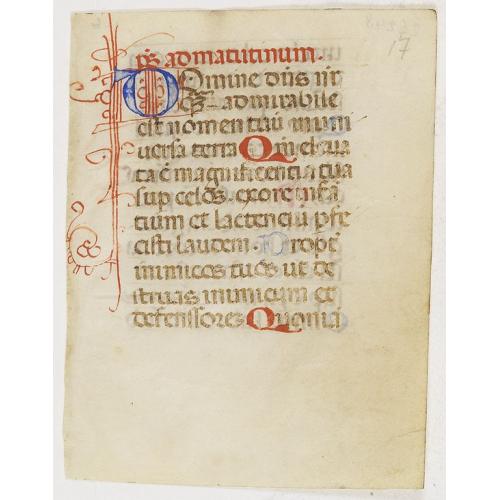 17
ps ad matutinum.
Domine dns nr
q̃ admirabile
est nomen tuũ in uni
uersa terra Qm eleua
ta ē magnificentia tua
sup celos. ex ore infã
tium et lactenciũ pfe
cisti laudem. Prope
inimicos tuos ut de
struas inimicum et
defenssorez Quoniã